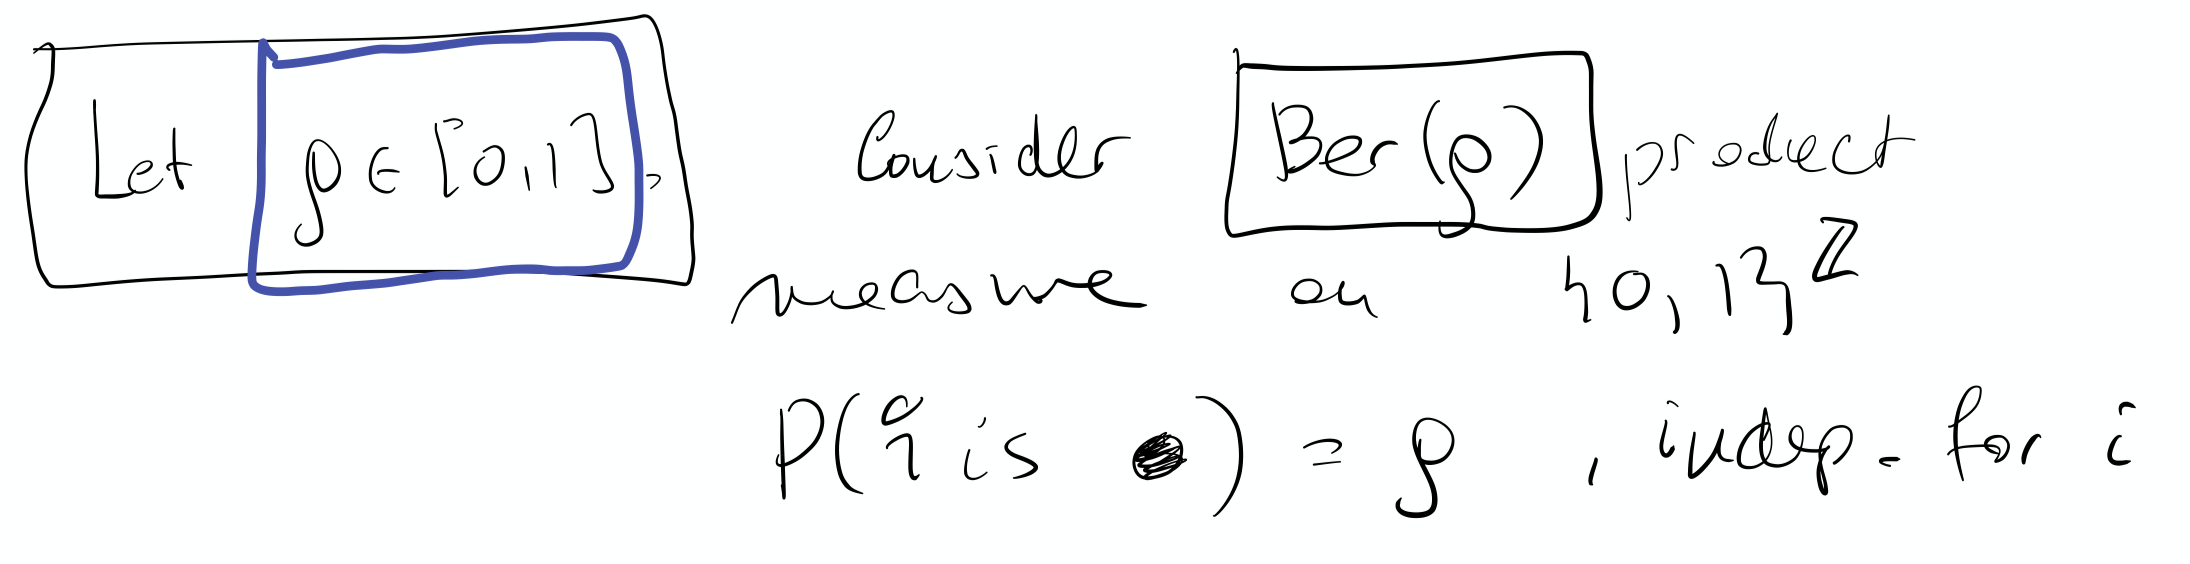 Let ρ ∈ [0,1], Consider Ber(ρ) product
measure on {0,1}^ℤ
P(i is ●) = ρ , indep. for i